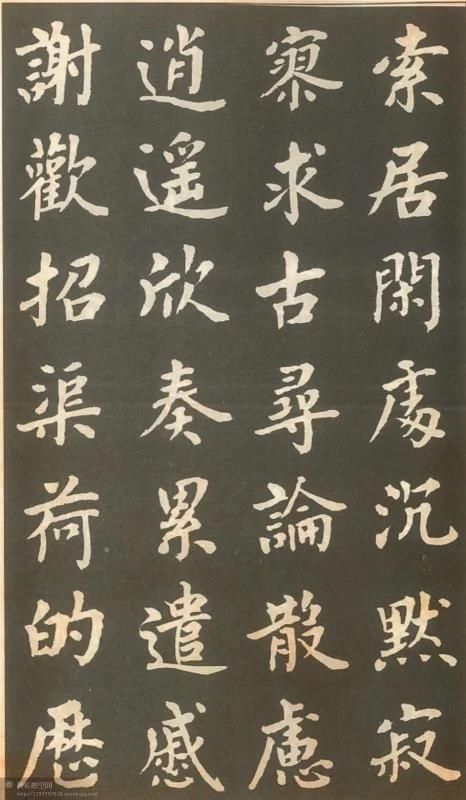 索居閑處沉默寂
寥求古尋論散慮
逍遥欣奏累遣慼
謝歡招渠荷的歷